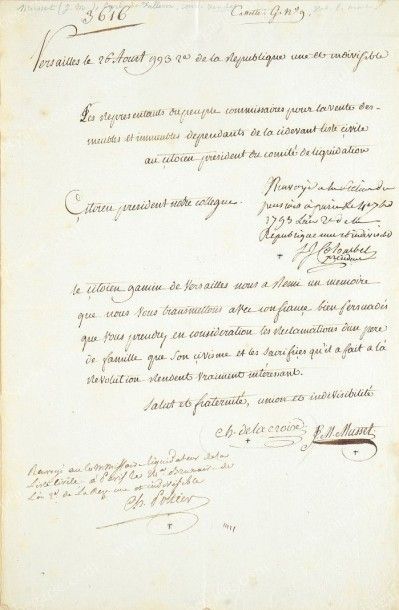 3616
Cotte G. N° 9.
Versailles le 26 Aout 1793 2e de la Republique une et indivisible
Les Representants du peuple commissaires pour la vente des
meubles et immeubles dependants de la cidevant liste civile
au citoien president du comité de liquidation
Citoien president notre collegue.
Renvoyé a la
pensions a paris le
1793 L'an 2e de la
Republique une et indivisible
president
le citoien gamin de Versailles nous a Remi un memoire
que nous vous transmettons avec confiance bien persuadés
que vous prendrez en consideration les Reclamations d'un pere
de famille que son civisme et les sacrifices qu'il a fait a la
Revolution Rendent vraiment intéressant.
Salut et fraternité, union et indivisibilité
Ch. delacroix J. M. Musset
Renvoyé au Commissaire liquidateur de la
Liste Civile a Paris le
L'an 2e de La Rep. une et indivisible
Ch. Potier